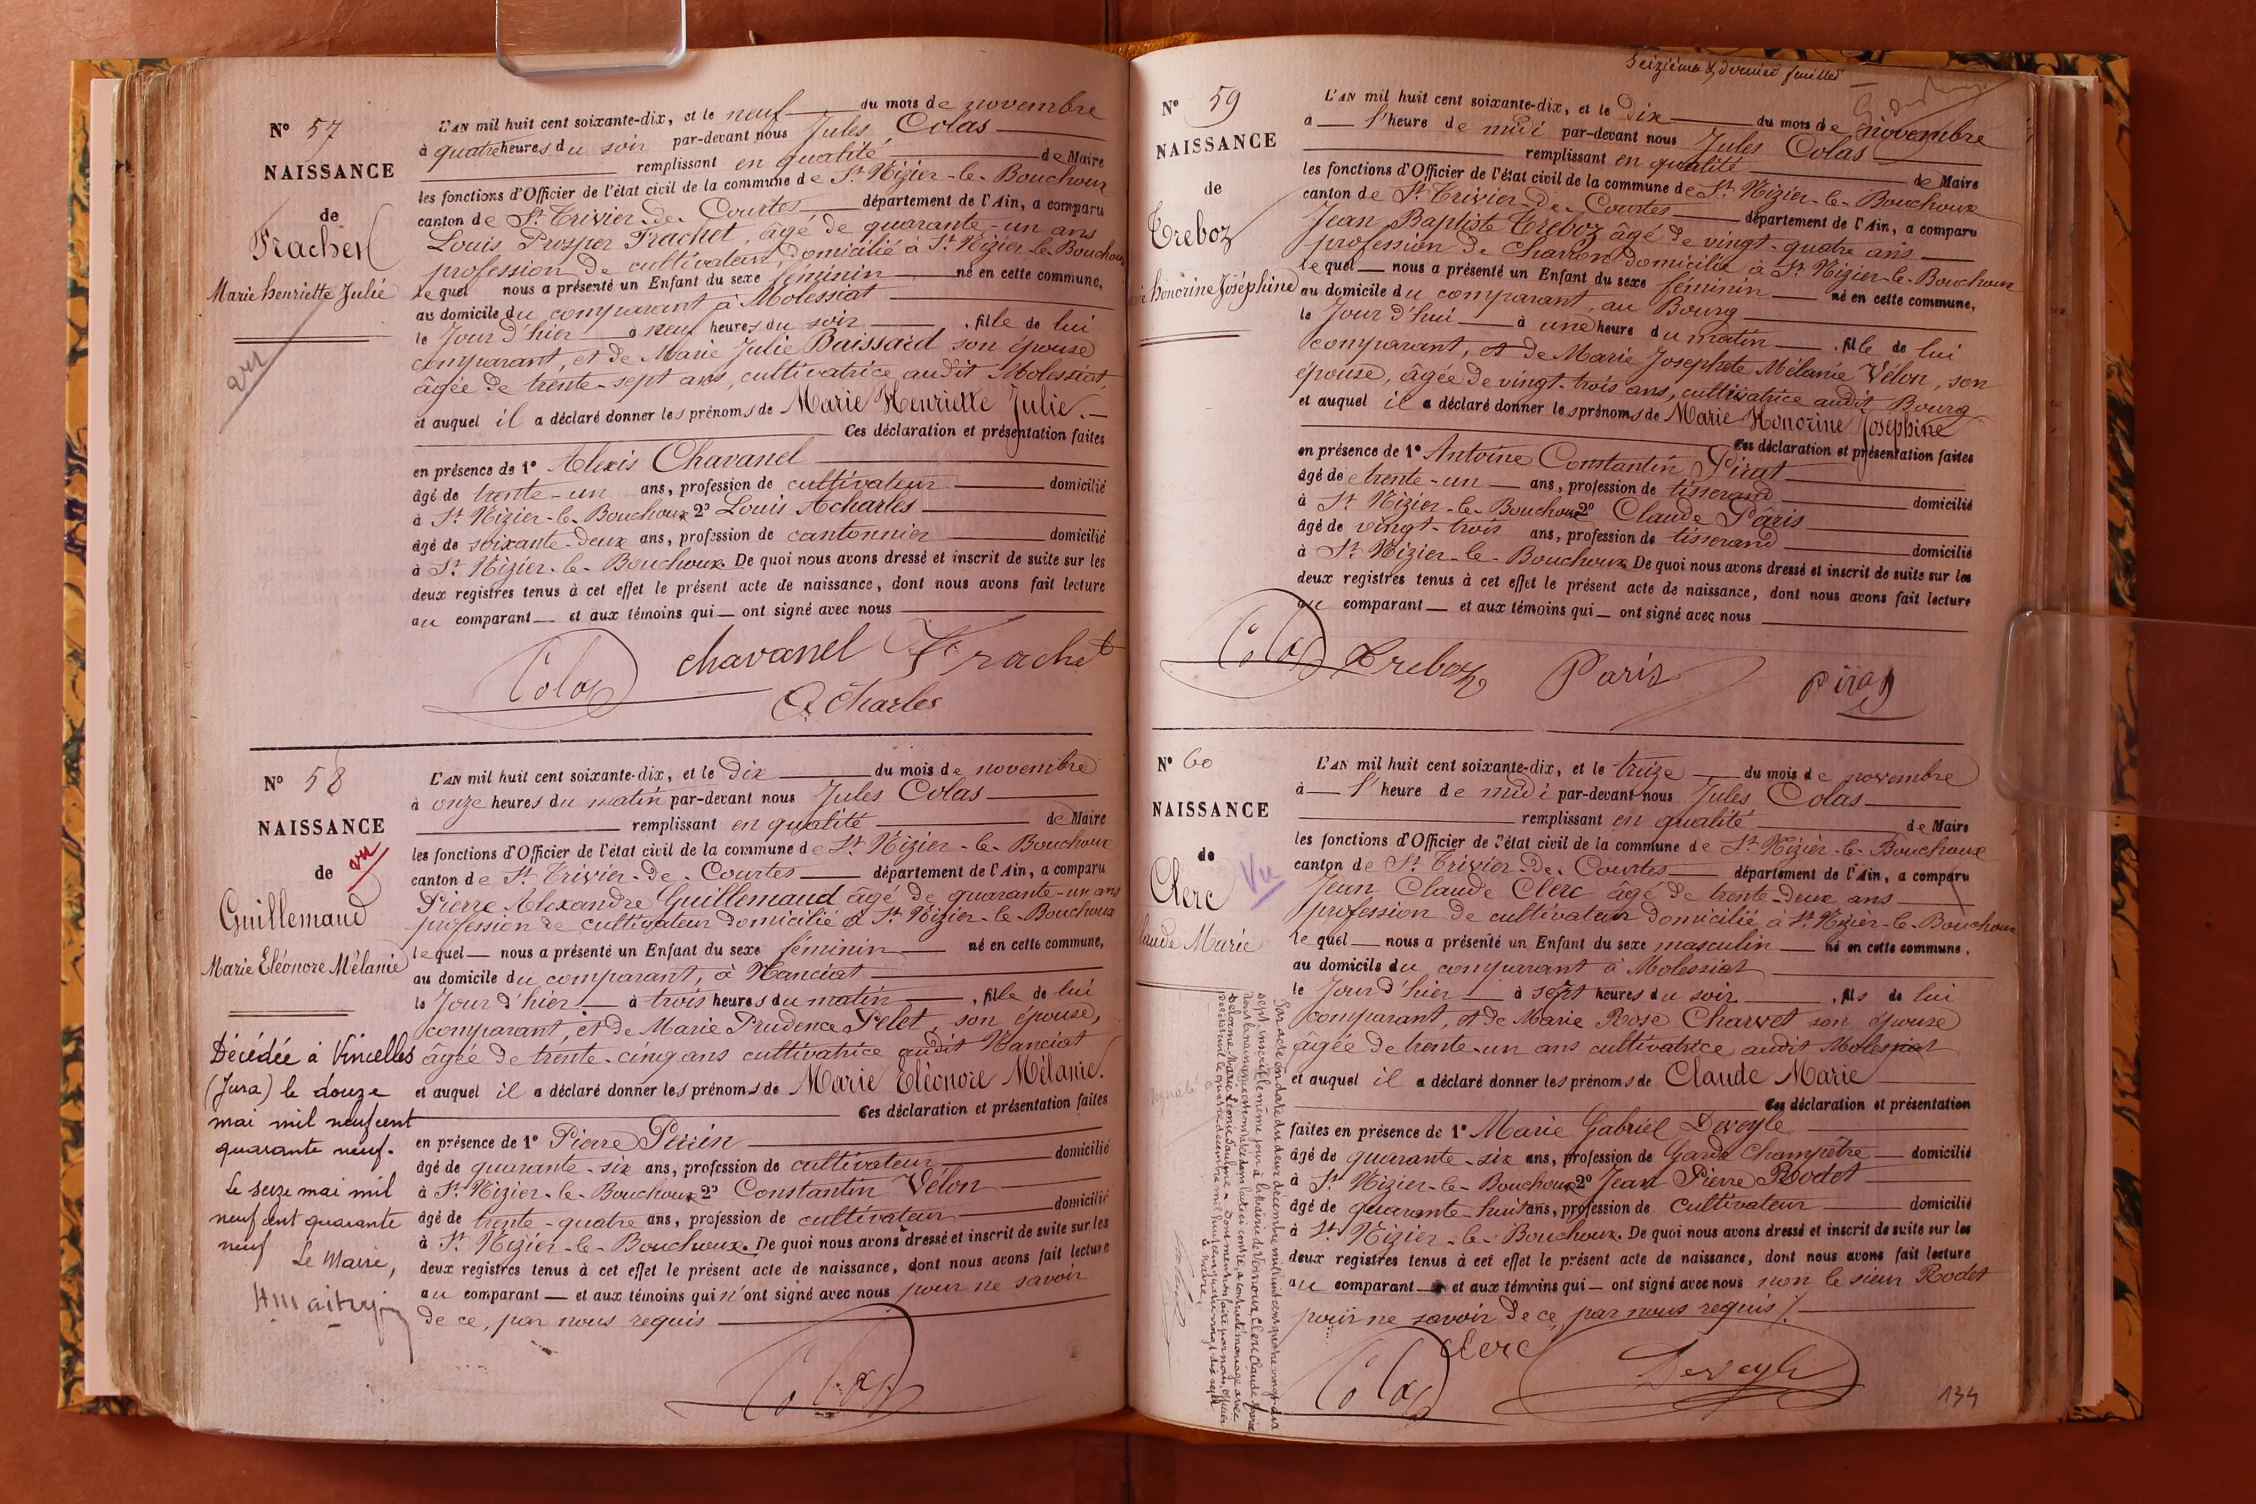 N° 57
NAISSANCE
de
Frachet
Marie henriette Julie
vu
L'AN mil huit cent soixante-dix, et le neuf du mois de novembre
à quatre heures du soir par-devant nous Jules Colas
remplissant en qualité de Maire
les fonctions d'Officier de l'état civil de la commune de St Nizier-le-Bouchoux
canton de St Trivier-de-Courtes département de l'Ain, a comparu
Louis Prosper Frachet, âgé de quarante-un ans
profession de cultivateur, domicilié à St Nizier-le-Bouchoux
lequel nous a présenté un Enfant du sexe féminin né en cette commune,
au domicile du comparant à Molessiat
le Jour d'hier à neuf heures du soir, fille de lui
comparant, et de Marie Julie Buissard son épouse
âgée de trente-sept ans, cultivatrice audit Molessiat
et auquel il a déclaré donner les prénoms de Marie Henriette Julie.
Ces déclaration et présentation faites
en présence de 1° Alexis Chavanel
âgé de trente-un ans, profession de cultivateur domicilié
à St Nizier-le-Bouchoux 2° Louis Acharles
âgé de soixante-deux ans, profession de cantonnier domicilié
à St Nizier-le-Bouchoux De quoi nous avons dressé et inscrit de suite sur les
deux registres tenus à cet effet le présent acte de naissance, dont nous avons fait lecture
au comparant et aux témoins qui ont signé avec nous
Colas chavanel Frachet
Acharles
N° 58
NAISSANCE
de
vu
Guillemaud
Marie Eléonore Mélanie
Décédée à Vincelles
(Jura) le douze
mai mil neuf cent
quarante neuf.
Le seize mai mil
neuf cent quarante
neuf
Le Maire,
L'AN mil huit cent soixante-dix, et le dix du mois de novembre
à onze heures du matin par-devant nous Jules Colas
remplissant en qualité de Maire
les fonctions d'Officier de l'état civil de la commune de St Nizier-le-Bouchoux
canton de St Trivier-de-Courtes département de l'Ain, a comparu
Pierre Alexandre Guillemaud âgé de quarante-un ans
profession de cultivateur domicilié à St Nizier-le-Bouchoux
lequel nous a présenté un Enfant du sexe féminin né en cette commune,
au domicile du comparant, à Nanciat
le Jour d'hier à trois heures du matin, fille de lui
comparant, et de Marie Prudence Pelet, son épouse,
âgée de trente-cinq ans cultivatrice audit Nanciat
et auquel il a déclaré donner les prénoms de Marie Eléonore Mélanie.
Ces déclaration et présentation faites
en présence de 1° Pierre Perrin
âgé de quarante-six ans, profession de cultivateur domicilié
à St Nizier-le-Bouchoux 2° Constantin Vélon
âgé de trente-quatre ans, profession de cultivateur domicilié
à St Nizier-le-Bouchoux. De quoi nous avons dressé et inscrit de suite sur les
deux registres tenus à cet effet le présent acte de naissance, dont nous avons fait lecture
au comparant et aux témoins qui n'ont signé avec nous pour ne savoir
de ce, par nous requis
Colas
Seizième & dernier feuillet
N° 59
NAISSANCE
de
Treboz
honorine Joséphine
L'AN mil huit cent soixante-dix, et le dix du mois de novembre
à l'heure de midi par-devant nous Jules Colas
remplissant en qualité de Maire
les fonctions d'Officier de l'état civil de la commune de St Nizier-le-Bouchoux
canton de St Trivier-de-Courtes département de l'Ain, a comparu
Jean Baptiste Treboz âgé de vingt-quatre ans
profession de charron domicilié à St Nizier-le-Bouchoux
lequel nous a présenté un Enfant du sexe féminin né en cette commune,
au domicile du comparant, au Bourg
le Jour d'hui à une heure du matin, fille de lui
comparant, et de Marie Josephte Mélanie Vélon, son
épouse, âgée de vingt-trois ans, cultivatrice audit Bourg
et auquel il a déclaré donner les prénoms de Marie Honorine Joséphine
Ces déclaration et présentation faites
en présence de 1° Antoine Constantin Pirat
âgé de trente-un ans, profession de tisserand domicilié
à St Nizier-le-Bouchoux 2° Claude Pâris
âgé de vingt-trois ans, profession de tisserand domicilié
à St Nizier-le-Bouchoux De quoi nous avons dressé et inscrit de suite sur les
deux registres tenus à cet effet le présent acte de naissance, dont nous avons fait lecture
au comparant et aux témoins qui ont signé avec nous
Colas Treboz Paris Pirat
N° 60
NAISSANCE
de
Vu
Clerc
Claude Marie
L'AN mil huit cent soixante-dix, et le treize du mois de novembre
à l'heure de midi par-devant nous Jules Colas
remplissant en qualité de Maire
les fonctions d'Officier de l'état civil de la commune de St Nizier-le-Bouchoux
canton de St Trivier-de-Courtes département de l'Ain, a comparu
Jean Claude Clerc âgé de trente-deux ans
profession de cultivateur domicilié à St Nizier-le-Bouchoux
lequel nous a présenté un Enfant du sexe masculin né en cette commune,
au domicile du comparant à Molessiat
le Jour d'hier à sept heures du soir, fils de lui
comparant, et de Marie Rose Charvet son épouse
âgée de trente-un ans cultivatrice audit Molessiat
et auquel il a déclaré donner les prénoms de Claude Marie
Ces déclaration et présentation
faites en présence de 1° Marie Gabriel Deveyle
âgé de quarante-six ans, profession de Garde Champêtre domicilié
à St Nizier-le-Bouchoux 2° Jean Pierre Rodet
âgé de quarante-huit ans, profession de cultivateur domicilié
à St Nizier-le-Bouchoux. De quoi nous avons dressé et inscrit de suite sur les
deux registres tenus à cet effet le présent acte de naissance, dont nous avons fait lecture
au comparant et aux témoins qui ont signé avec nous non le sieur Rodet
pour ne savoir de ce, par nous requis
Clerc
Colas Deveyle
Par acte en date du deux décembre mil huit cent quatre vingt dix
sept, inscrit le même jour à la mairie de Clerc Claude Marie
a contracté mariage avec
Le Maire,
134